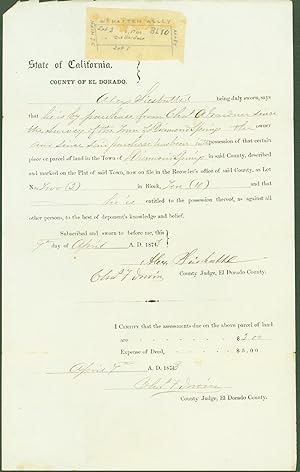 State of California.
COUNTY OF EL DORADO.
being duly sworn, says
that he is by purchase from Chas A Gardner since
the survey of the Town of Diamond Spring the owner
and since said purchase has been in possession of that certain
piece or parcel of land in the Town of Diamond Spring in said County, described
and marked on the Plat of said Town, now on file in the Recorder's office of said County, as Lot
No. Two (2) in Block, Ten (10) and that
he is entitled to the possession thereof, as against all
other persons, to the best of deponent's knowledge and belief.
Subscribed and sworn to before me, this
day of April A. D. 1873
Chas F. Irwin County Judge, El Dorado County.
I CERTIFY that the assessments due on the above parcel of land
are $2.00
Expense of Deed, $5,00
April A. D. 1873
Chas F. Irwin
County Judge, El Dorado County.